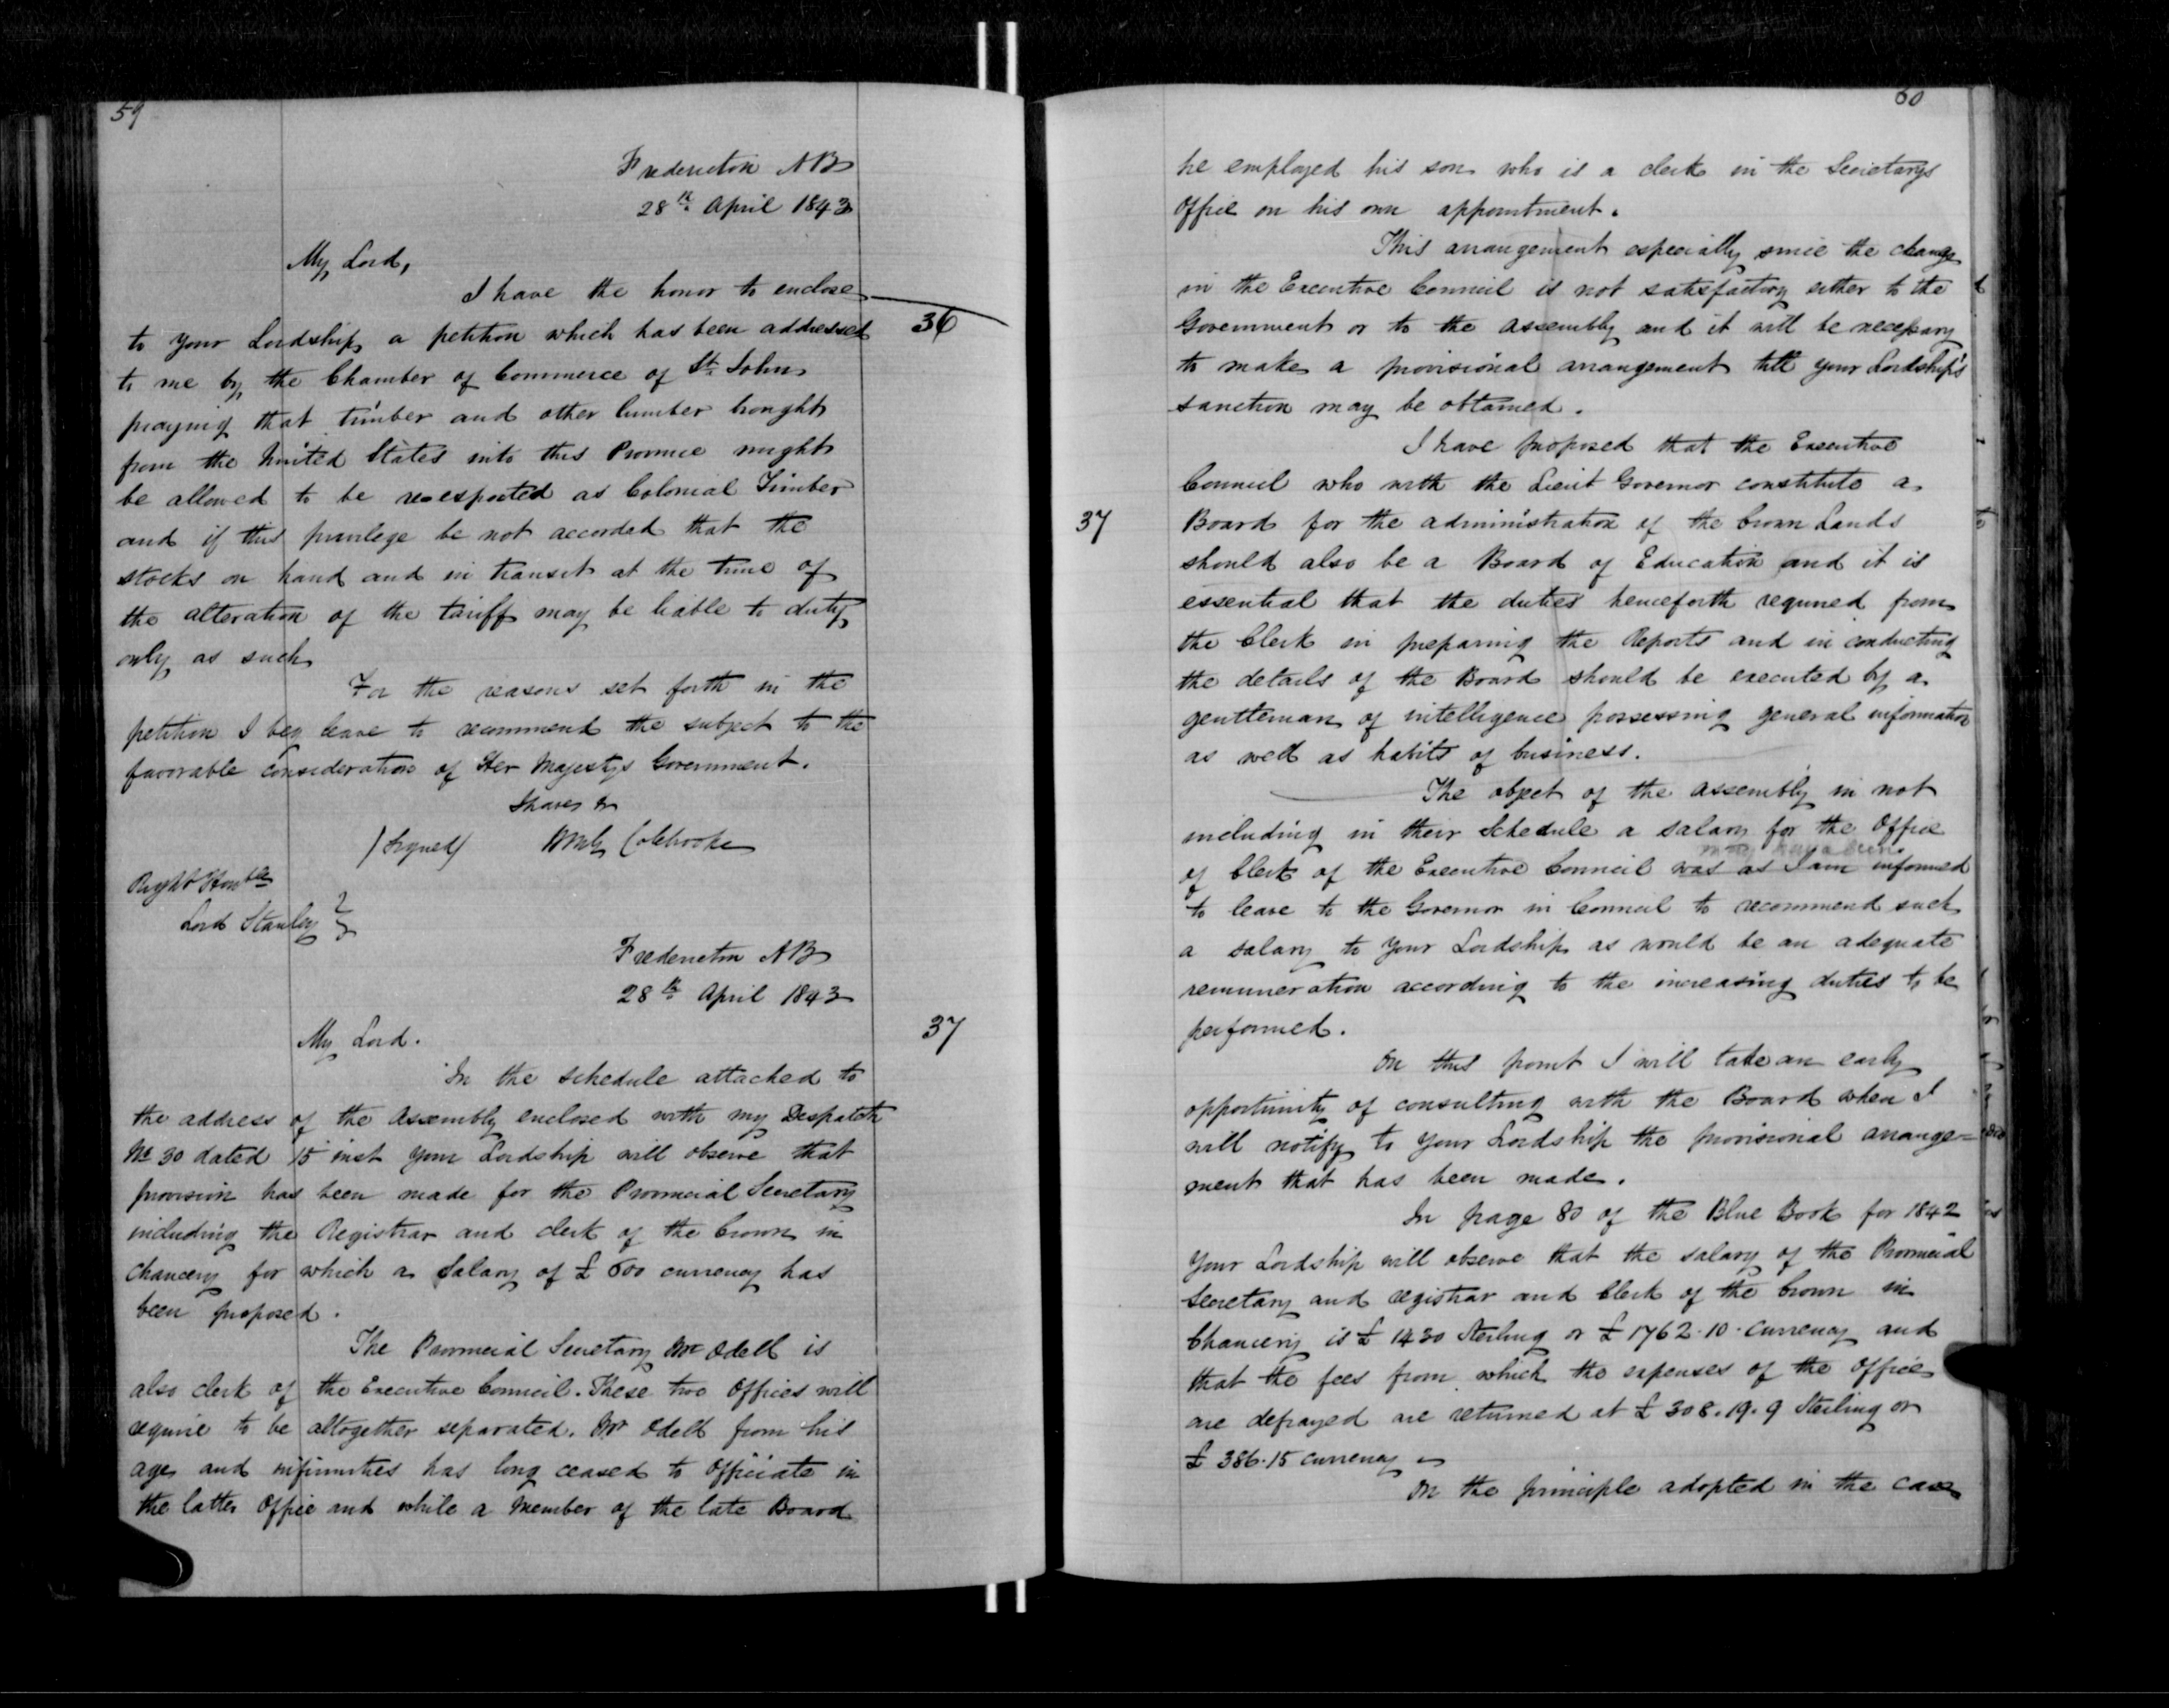 59
Fredericton NB
28th April 1843
My Lord,
I have the honor to enclose
36
to your Lordship a petition which has been addressed
to me by the Chamber of Commerce of St. John
praying that timber and other lumber brought
from the United States into this Province might
be allowed to be reexported as Colonial Timber
and if this privilege be not accorded that the
stocks on hand and in transit at the time of
the alteration of the tariff may be liable to duty
only as such
For the reasons set forth in the
petition I beg leave to recommend the subject to the
favorable consideration of Her Majestys Government.
I have &c
(Signed) Colebrooke
Right Honble
Lord Stanley
Fredericton NB
28th April 1843
37
My Lord.
In the schedule attached to
the address of the Assembly enclosed with my Despatch
No 30 dated 15 inst your Lordship will observe that
provision has been made for the Provincial Secretary
including the Registrar and clerk of the Crown in
Chancery for which a Salary of £ 600 currency has
been proposed.
The Provincial Secretary Mr Odell is
also clerk of the Executive Council. These two Offices will
require to be altogether separated. Mr Odell from his
age and infirmities has long ceased to officiate in
the latter Office and while a Member of the late Board
60
he employed his son who is a clerk in the Secretarys
Office on his own appointment.
This arrangement especially since the change
in the Executive Council is not satisfactory either to the
Government or to the Assembly and it will be necessary
to make a provisional arrangement till your Lordship's
sanction may be obtained.
I have proposed that the Executive
Council who with the Lieut Governor constitute a
37
Board for the administration of the Crown Lands
should also be a Board of Education and it is
essential that the duties henceforth required from
the Clerk in preparing the Reports and in conducting
the details of the Board should be executed by a
gentleman of intelligence possessing general information
as well as habits of business.
The object of the Assembly in not
including in their Schedule a salary for the Office
may have been
of Clerk of the Executive Council was as I am informed
to leave to the Governor in Council to recommend such
a salary to your Lordship as would be an adequate
remuneration according to the increasing duties to be
performed.
On this point I will take an early
opportunity of consulting with the Board when I
will notify to your Lordship the provisional arrange=
ment that has been made.
In page 80 of the Blue Book for 1842
Your Lordship will observe that the salary of the Provincial
Secretary and registrar and Clerk of the Crown in
Chancery is £ 1430 Sterling or £ 1762.10. currency and
that the fees from which the expenses of the office
are defrayed are returned at £ 308.19.9 Sterling or
£ 386.15 currency
On the principle adopted in the case